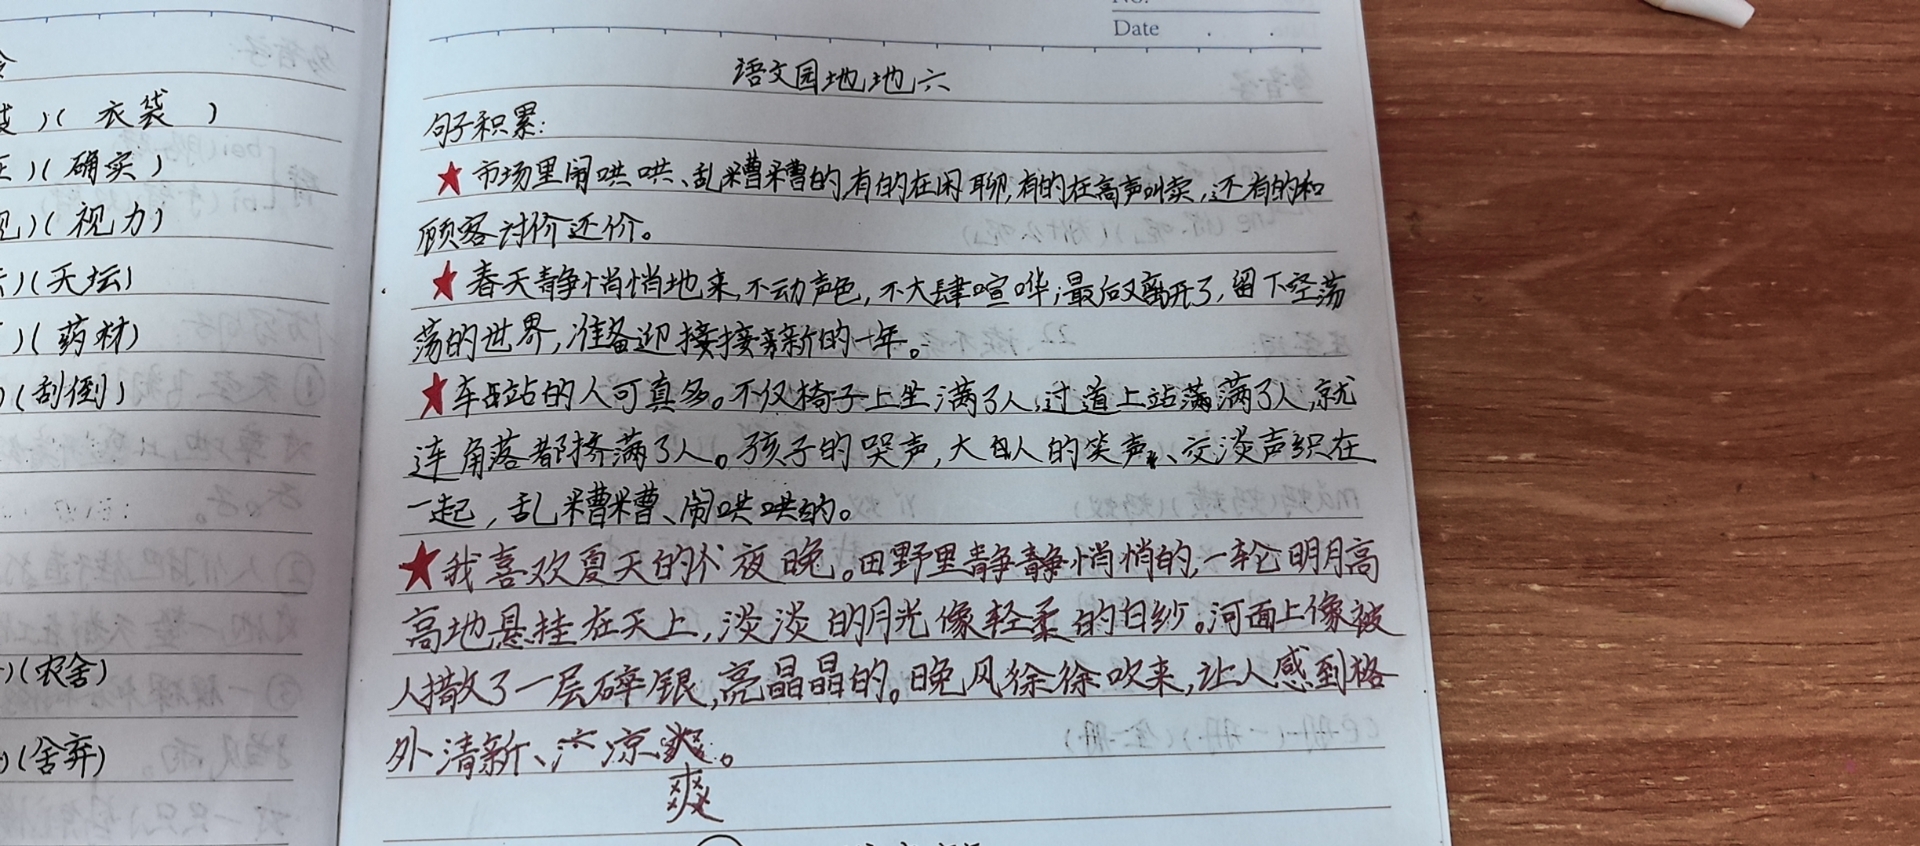 衣袋 )
)( 确实 )
)( 视力 )
)(天坛)
)( 药材)
)(刮倒)
)(农舍)
)(舍弃)
Date
语文园地地六
句子积累:
★ 市场里闹哄哄、乱糟糟的,有的在闲聊,有的在高声叫卖,还有的和
顾客讨价还价。
★ 春天静悄悄地来,不动声色,不大肆喧哗;最后又离开了,留下空荡
荡的世界,准备迎接接新的一年。
★车站的人可真多。不仅椅子上坐满了人,过道上站满满了人,就
连角落都挤满了人。孩子的哭声,大人的笑声、交谈声织在
一起,乱糟糟、闹哄哄的。
★我喜欢夏天的个夜晚。田野里静静悄悄的,一轮明月高
高地悬挂在天上,淡淡的月光像轻柔的白纱。河面上像被
人撒了一层碎银,亮晶晶的。晚风徐徐吹来,让人感到格
外清新、凉。
爽